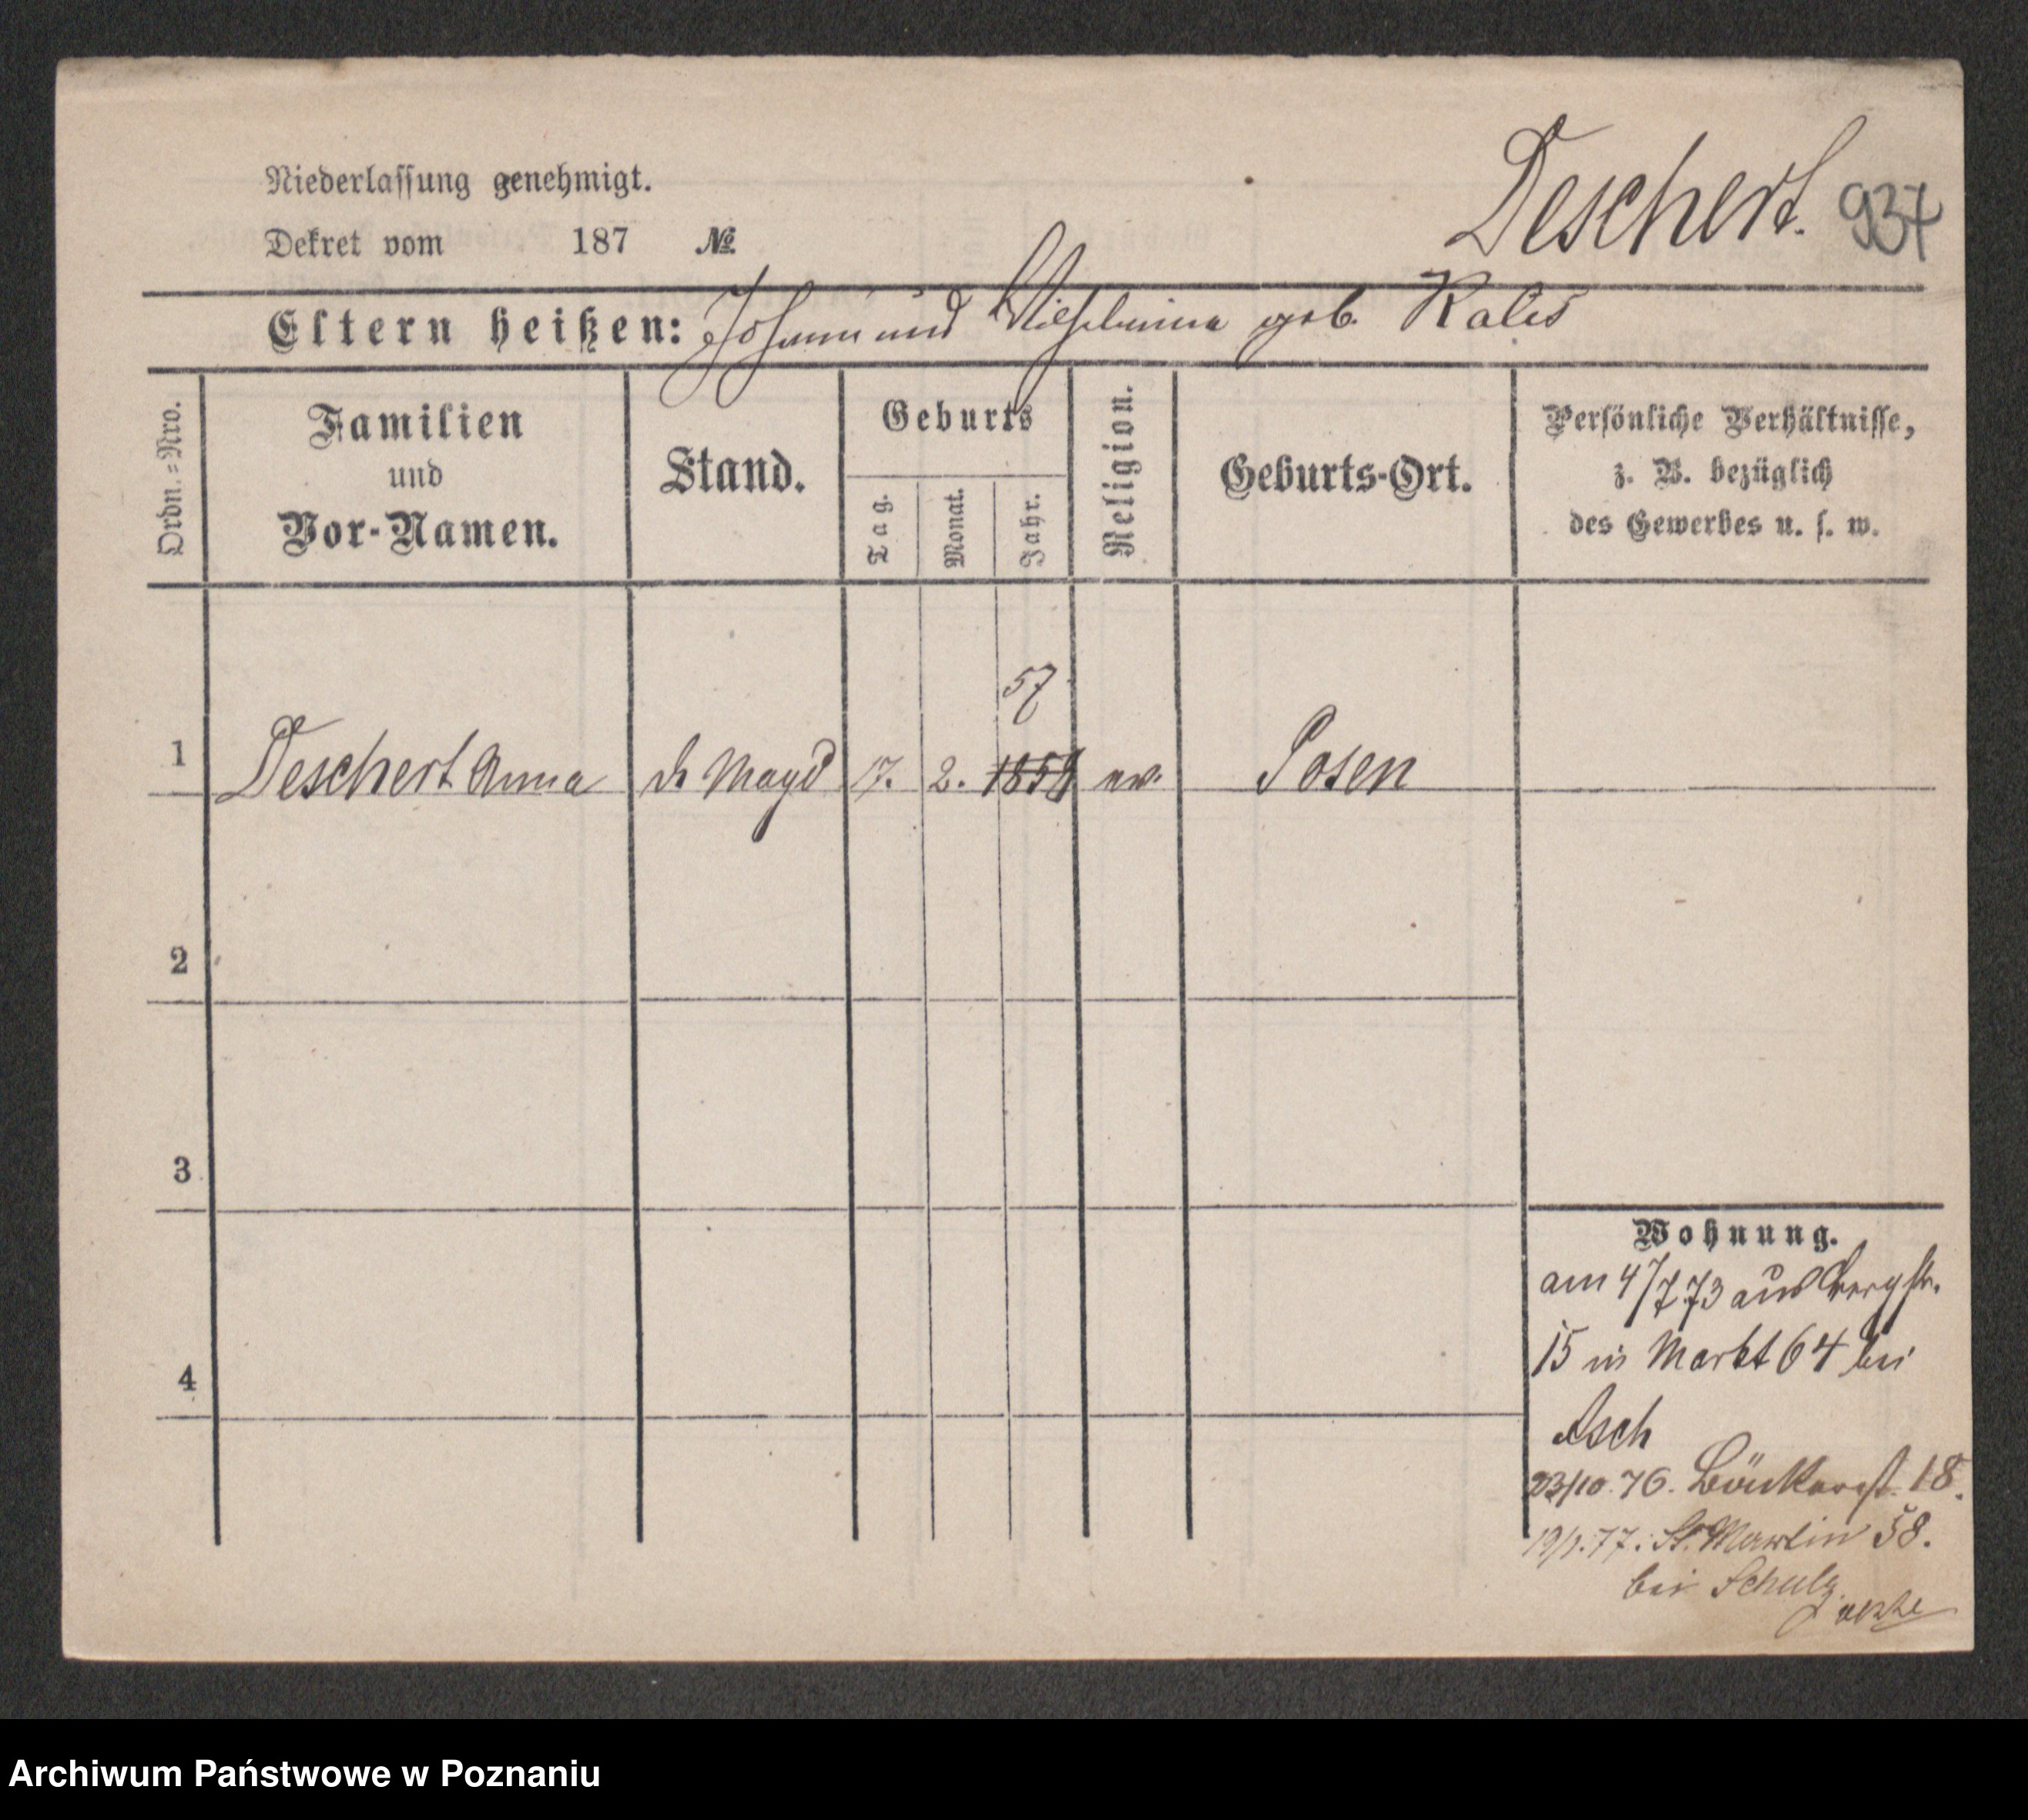 Niederlassung genehmigt.
Dekret vom 187 №
Deschert. 937
Eltern heißen: Johann und Wilhelmine geb. Kales
Ordn.=Nro.
Familien
und
Vor-Namen.
Stand.
Geburts
Tag.
Monat.
Jahr.
Religion.
Geburts-Ort.
Persönliche Verhältnisse,
z. B. bezüglich
des Gewerbes u. s. w.
57
1 Deschert Anna d. Magd 17. 2. 1858 ev. Posen
2
3
4
Wohnung.
am 4/7 73 aus Bergstr.
15 in Markt 64 bei
Asch
23/10. 76. Bäckerst. 18.
19/1. 77. St. Martin 58.
bei Schulz
Archiwum Państwowe w Poznaniu